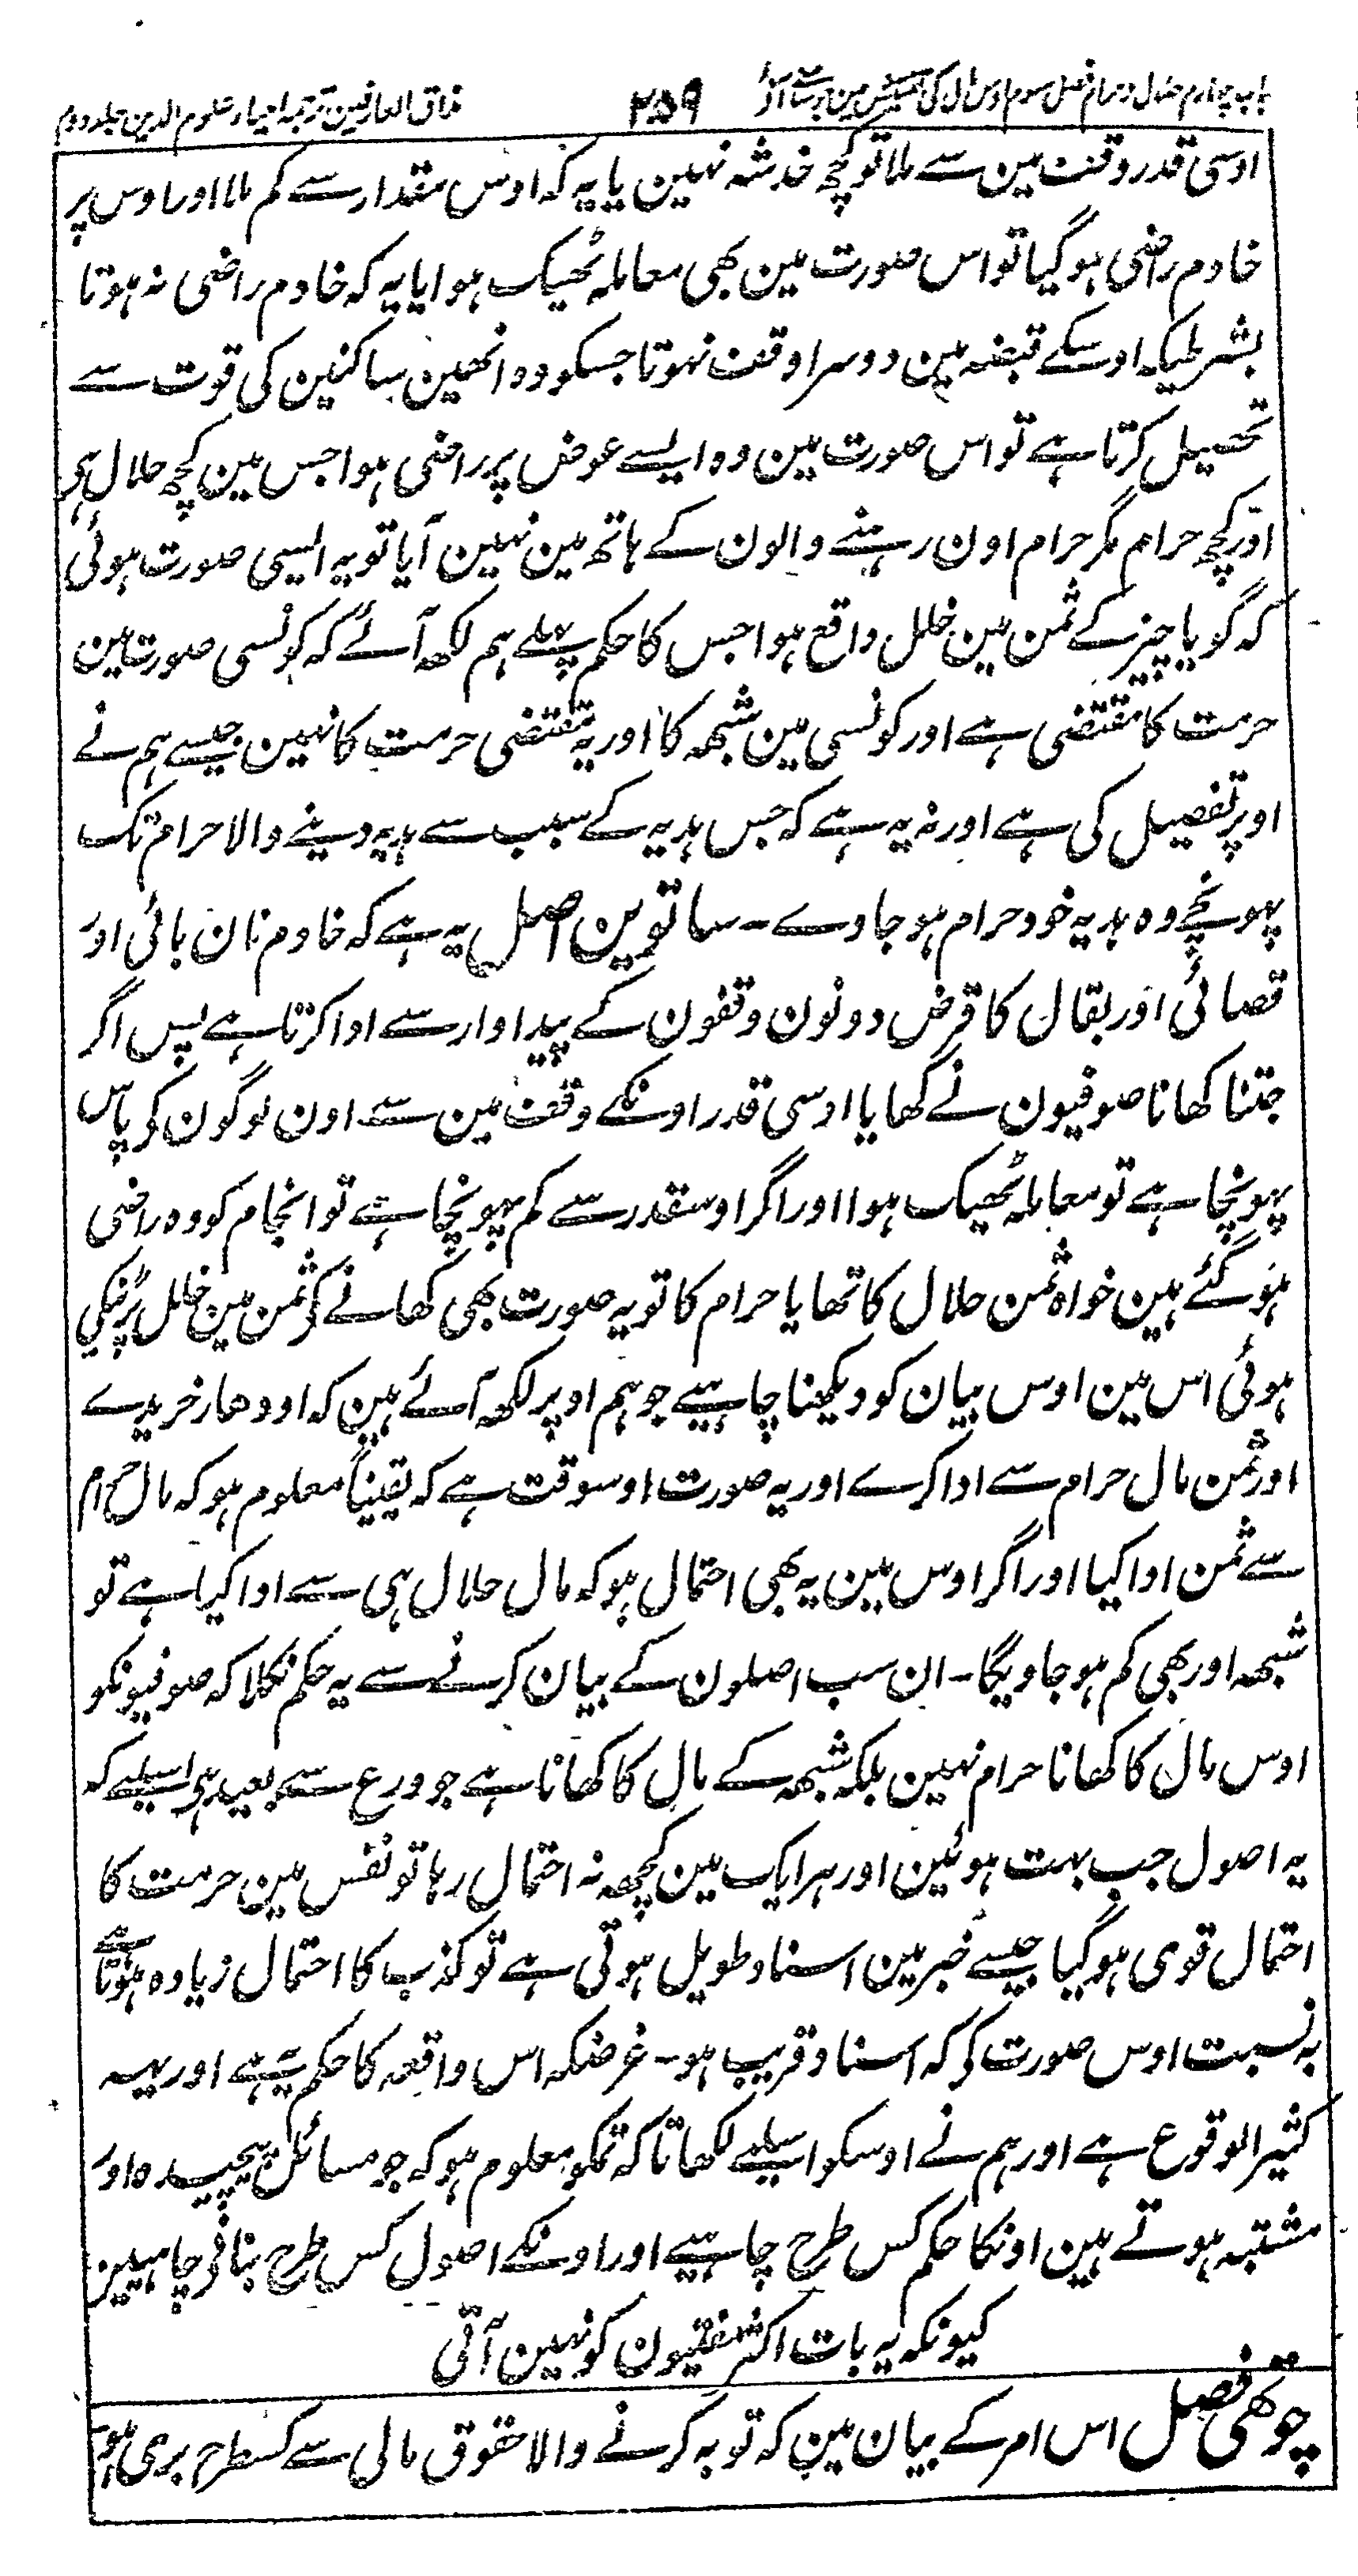 باب چہارم حلال و حرام فصل سوم اوس مال کی تفتیش مین ۲۵۹ مذاق العارفین ترجمہ احیاء علوم الدین جلد دوم
اوسی قدر وقف مین سے ملا تو کچھ خدشہ نہین یا یہ کہ اوس مقدار سے کم ملا اور اوس پر
خادم راضی ہو گیا تو اس صورت مین بھی معاملہ ٹھیک ہوا یا یہ کہ خادم راضی نہ ہوتا
بشرطیکہ اوسکے قبضہ مین دوسرا وقف نہوتا جسکو وہ انھین ساکنین کی قوت سے
تحصیل کرتا ہے تو اس صورت مین وہ ایسے عوض پر راضی ہوا جس مین کچھ حلال ہی
اور کچھ حرام مگر حرام اون رہنے والون کے ہاتھ مین نہین آیا تو یہ ایسی صورت ہوئی
کہ گویا چیز کے ثمن مین خلل واقع ہوا جس کا حکم پہلے ہم لکھ آئے کہ کونسی صورت مین
حرمت کا مقتضی ہے اور کونسی مین شبھہ کا اور یہ مقتضی حرمت کا نہین جیسے ہم نے
اوپر تفصیل کی ہے اور نہ یہ ہے کہ جس ہدیہ کے سبب سے ہدیہ دینے والا حرام تک
پہونچے وہ ہدیہ خود حرام ہو جاوے - ساتوین اصل یہ ہے کہ خادم نان بائی اور
قصائی اور بقال کا قرض دونون وقفون کے پیداوار سے ادا کرتا ہے پس اگر
جتنا کھانا صوفیون نے کھایا اوسی قدر اونکے وقف مین سے اون لوگون کو پاس
پہونچا ہے تو معاملہ ٹھیک ہوا اور اگر اوسقدر سے کم پہونچا ہے تو انجام کو وہ راضی
ہو گئے ہین خواہ ثمن حلال کا تھا یا حرام کا تو یہ صورت بھی کھانے کو ثمن مین خلل پڑنیکی
ہوئی اس مین اوس بیان کو دیکھنا چاہیے جو ہم اوپر لکھ آئے ہین کہ اودھار خریدے
اور ثمن مال حرام سے ادا کرے اور یہ صورت اوسوقت ہے کہ یقیناً معلوم ہو کہ مال حرام
سے ثمن ادا کیا اور اگر اوس مین یہ بھی احتمال ہو کہ مال حلال ہی سے ادا کیا ہے تو
شبھہ اور بھی کم ہو جاویگا - ان سب اصلون کے بیان کرنے سے یہ حکم نکلا کہ صوفیونکو
اوس مال کا کھانا حرام نہین بلکہ شبھہ کے مال کا کھانا ہے جو ورع سے بعید ہی اسلیے کہ
یہ اصول جب بہت ہوئین اور ہر ایک مین کچھ نہ احتمال رہا تو نفس مین حرمت کا
احتمال قوی ہو گیا جیسے خبر مین اسناد طویل ہوتی ہے تو کذب کا احتمال زیادہ ہوتا ہے
بہ نسبت اوس صورت کی کہ اسناد قریب ہو - غرضکہ اس واقعہ کا حکم یہ ہے اور یہہ
کثیر الوقوع ہے اور ہم نے اوسکو اسلیے لکھا تا کہ تمکو معلوم ہو کہ جو مسائل پیچیدہ اور
مشتبہ ہوتے ہین اونکا حکم کس طرح چاہیے اور اونکے اصول کس طرح بنانے چاہیین
کیونکہ یہ بات اکثر مفتیون کو نہین آتی
چوتھی فصل اس امر کے بیان مین کہ توبہ کرنے والا حقوق مالی سے کسطرح بری ہو